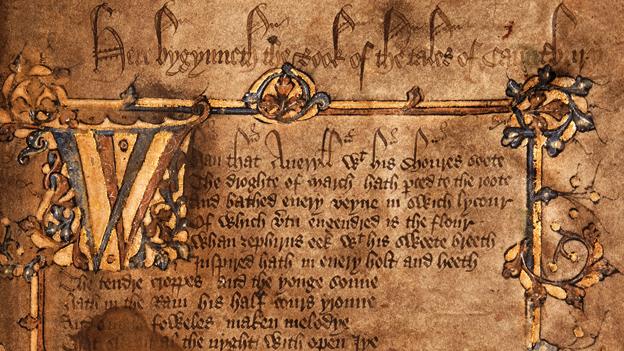 Here bygynneth the Book of the tales of Caunterbury
Whan that Aueryll wt his shoures soote
The droghte of march hath pced to the roote
And bathed euery veyne in swich lycour
Of which vtu engendred is the flour
Whan zephirus eek wt his sweete breeth
Inspired hath in euery holt and heeth
The tendre croppes and the yonge sonne
Hath in the Ram his half cours yronne
And foweles maken melodye
al the nyght with open Iye